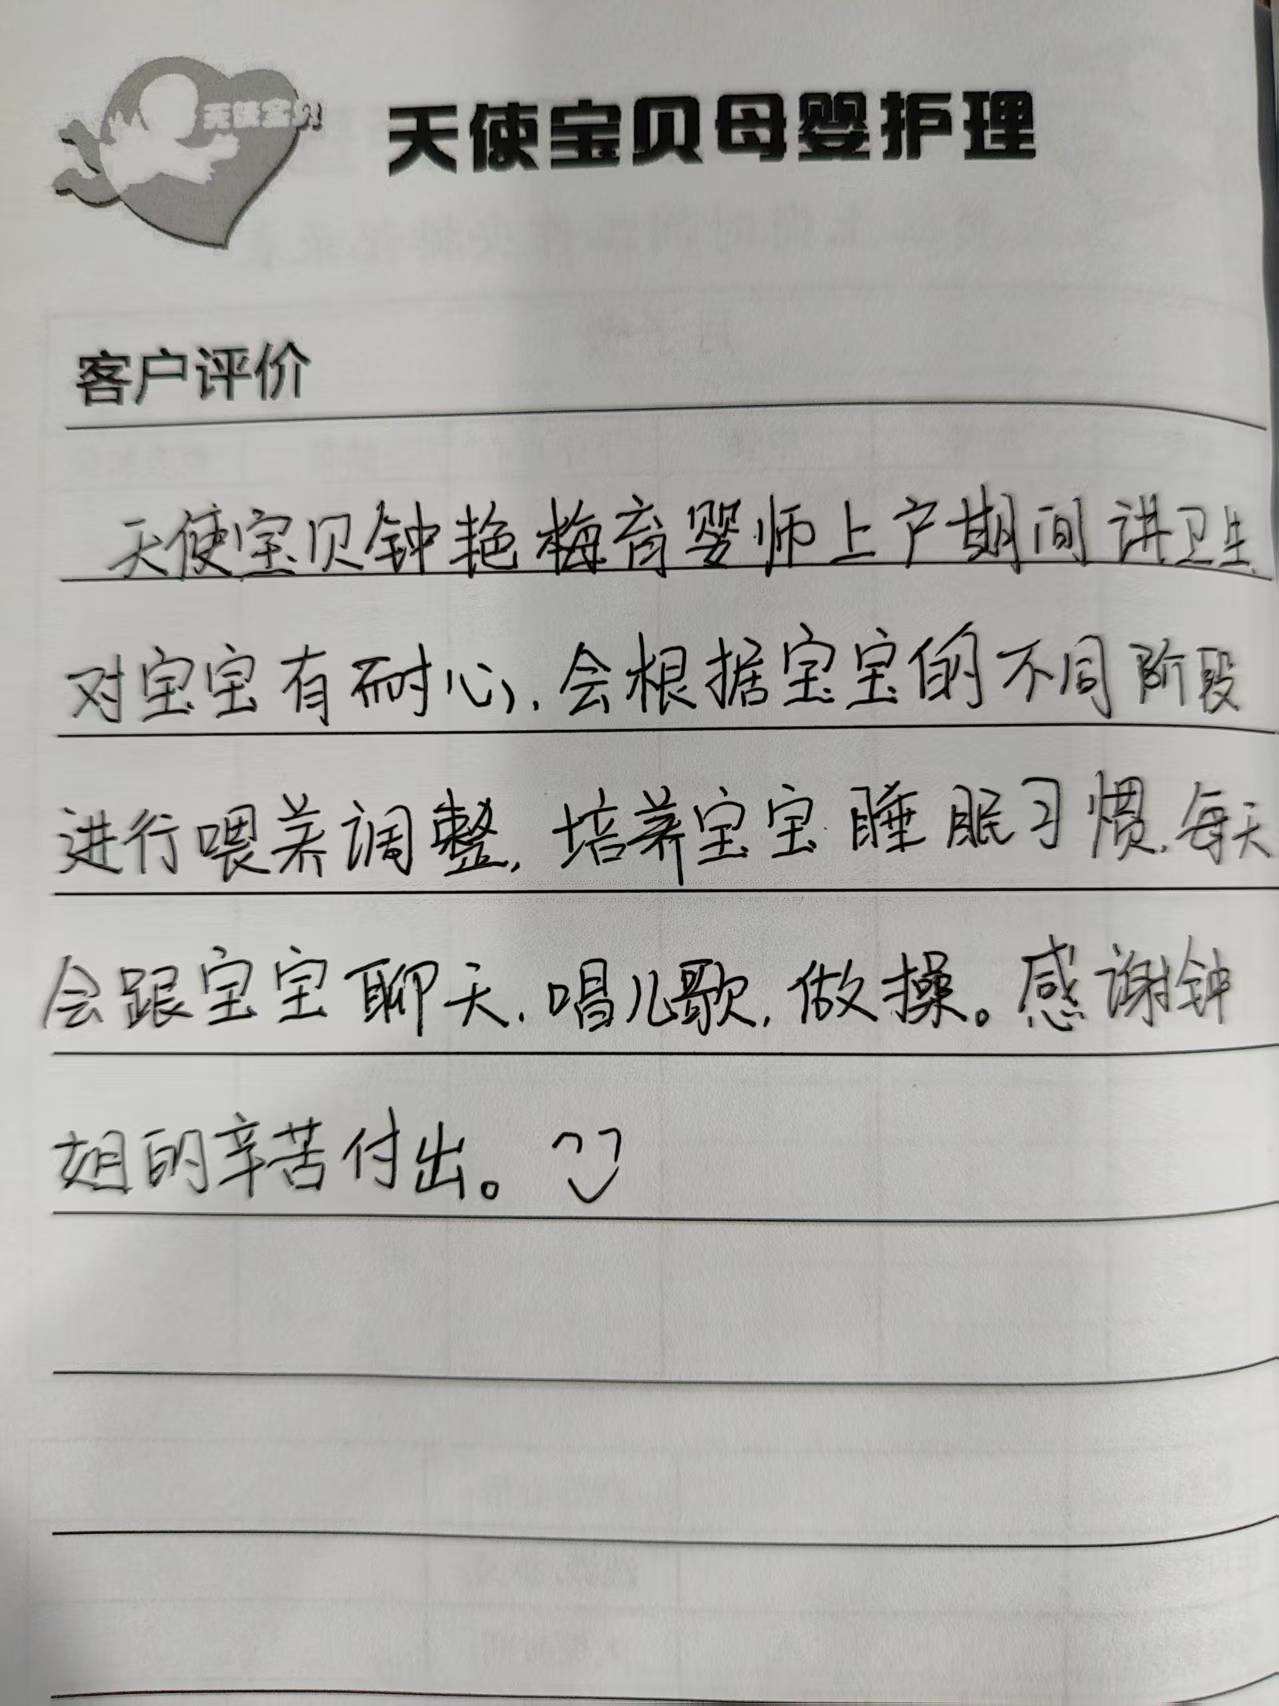 天使宝贝
天使宝贝母婴护理
客户评价
天使宝贝钟艳梅育婴师上户期间讲卫生.
对宝宝有耐心,会根据宝宝的不同阶段
进行喂养调整,培养宝宝睡眠习惯.每天
会跟宝宝聊天.唱儿歌,做操。感谢钟
姐的辛苦付出。